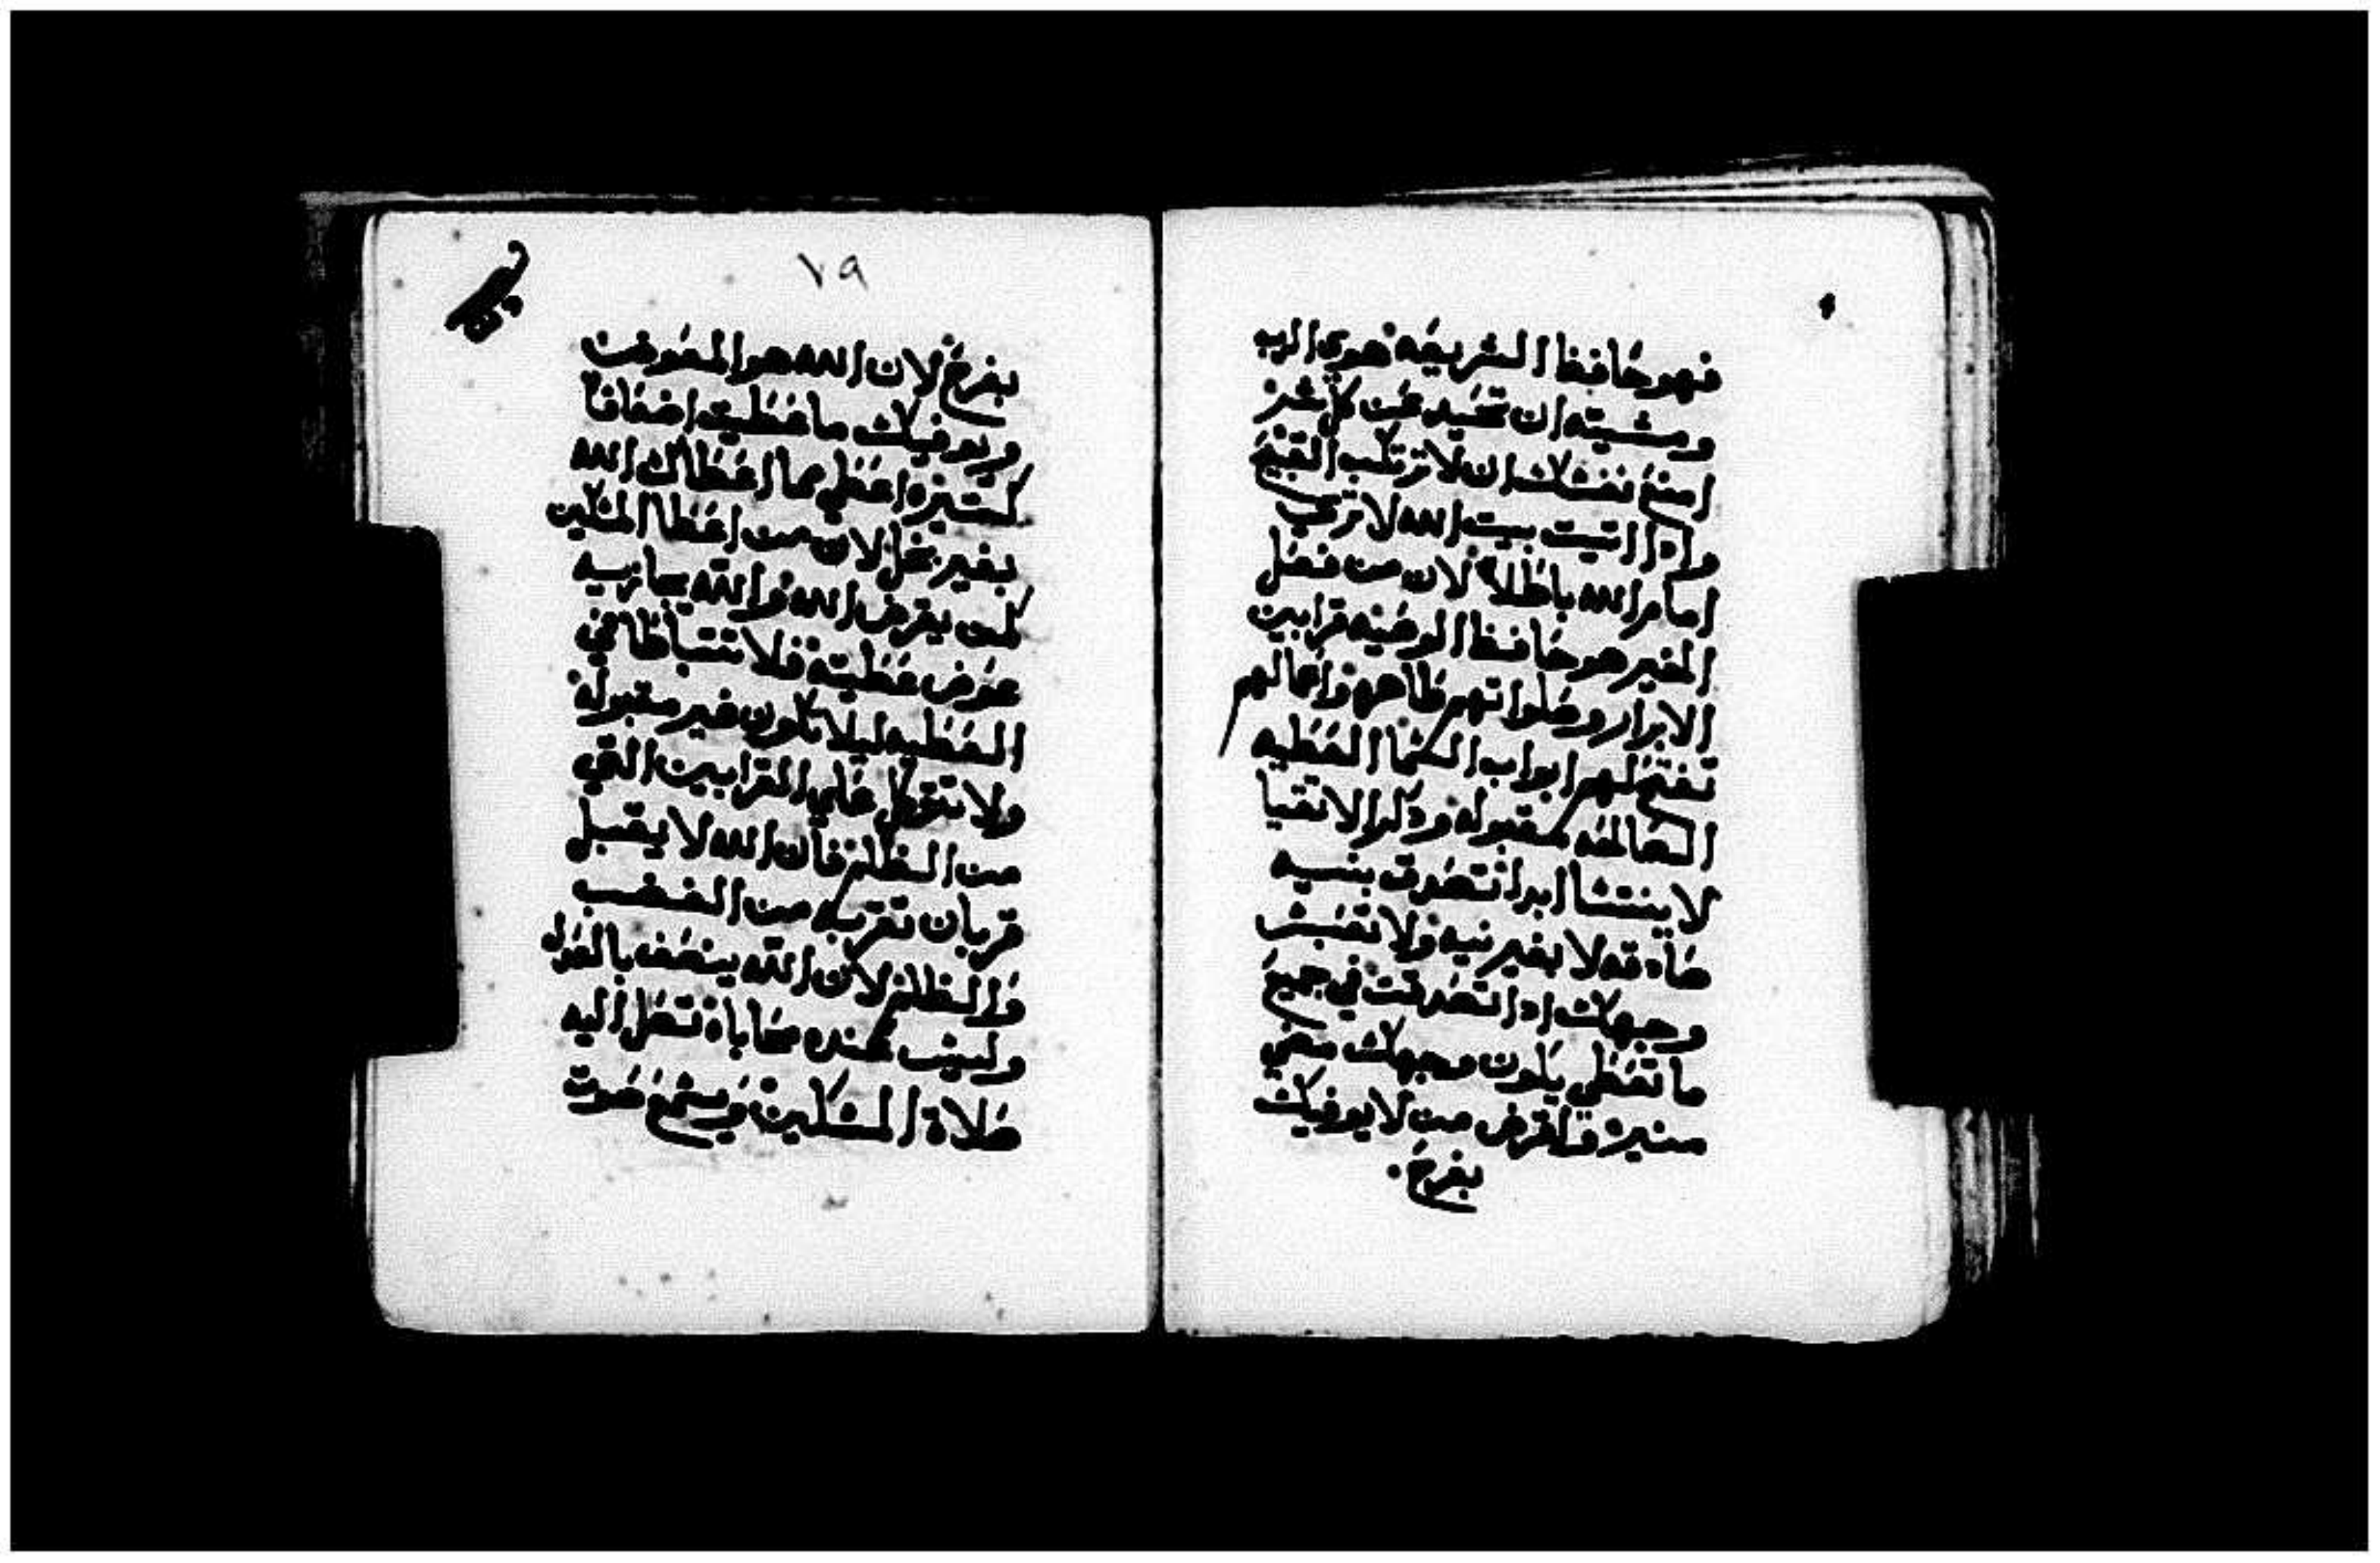 فهو حافظ الشريعه هوي الرب
ومشيته ان تحيد عن كل شر
امنع نفسك ان لا ترتكب القبيح
واذا اتيت بيت الله لا تربي
امام الله باطلا لان من فعل
الخير هو حافظ الوصيه قرابين
الابرار وصلواتهم طاهره واعمالهم
تفتح لهم ابواب السما العطيه
الصالحه مقبوله وذكر الاتقيا
لا ينتسا ابدا تصدق بنيه
صادقه لا بغير نيه ولا تعبس
وجهك اذا تصدقت في جميع
ما تعطي يكون وجهك مضي
منير واقرض من لا يوفيك
بفرح
٧٩
بفرح لان الله هو المعوض
ويوفيك ما عطيت اضعافا
كتيره اعطي مما اعطاك الله
بغير بخل لان من اعطا المسكين
كمن يقرض الله والله يجازيه
عوض عطيته فلا تتباطا في
العطيه ليلا تكون غير مقبوله
ولا تتوكل علي القرابين التي
من الظلم فان الله لا يقبل
قربان تقربه من الغضب
والظلم لان الله ينصف بالعدل
وليس عنده محاباه تصل اليه
صلاة المسكين ويسمع صوت